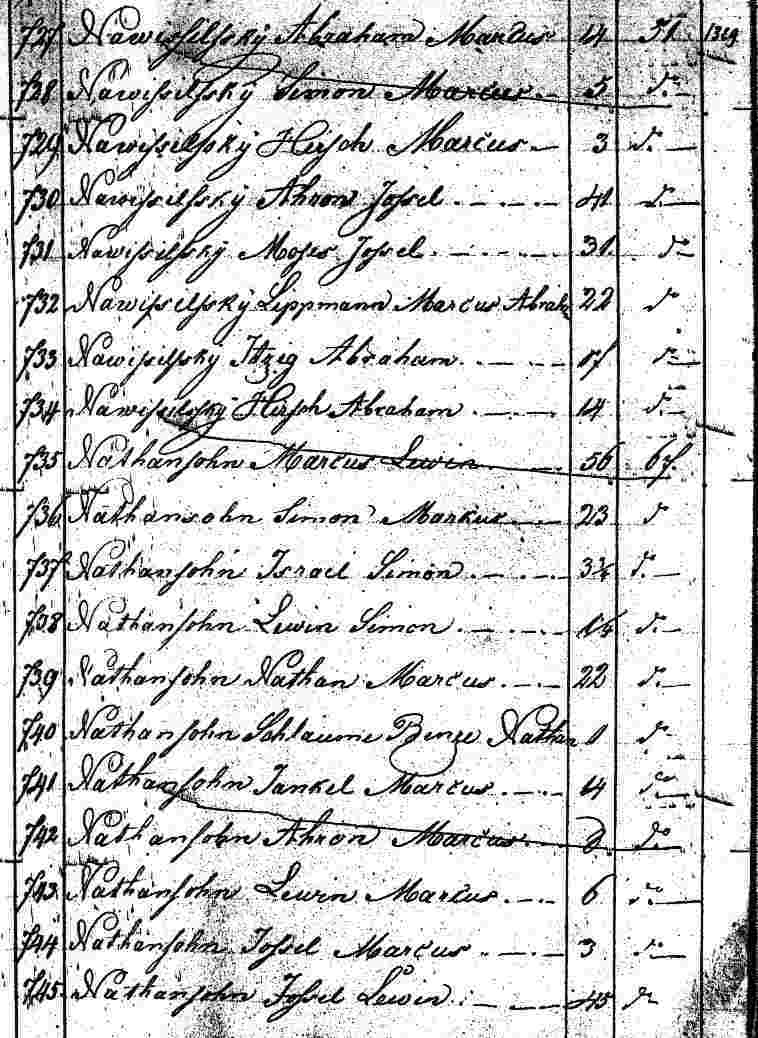 727 Nawisselssky Abraham Marcus 14 51 1319
728 Nawisselssky Simon Marcus 5 do
729 Nawisselssky Hirsch Marcus 3 do
730 Nawisselssky Ahron Jossel 41 do
731 Nawisselssky Moses Jossel 31 do
732 Nawisselssky Lippmann Marcus Abrah 22 do
733 Nawisselssky Itzig Abraham do
734 Nawisselssky Hirsch Abraham 14 do
735 Nathansohn Marcus Lewin 56
736 Nathansohn Simon Markus 23 do
737 Nathansohn Israel Simon do
738 Nathansohn Lewin Simon do
739 Nathansohn Nathan Marcus 22 do
740 Nathansohn Schlaume Nathan do
741 Nathansohn Jankel Marcus 14 do
742 Nathansohn Ahron Marcus do
743 Nathansohn Lewin Marcus 6 do
744 Nathansohn Jossel Marcus 3 do
745 Nathansohn Jossel Lewin 45 do